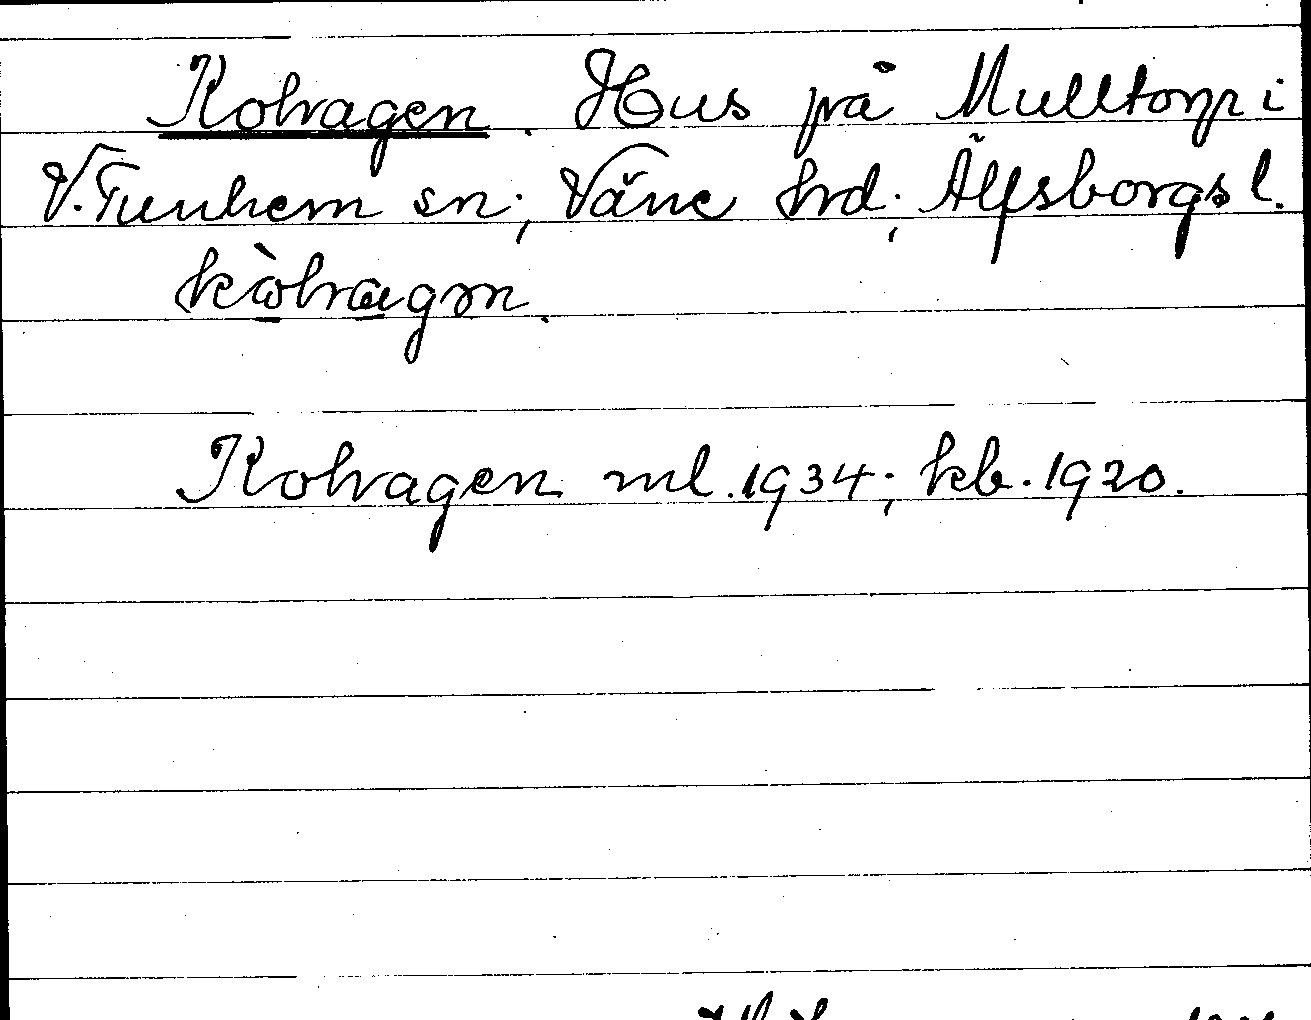 Kohagen. Hus på Mulltorp i
V. Tunhem sn; Väne hd; Älfsborgs l.
kòhagǝn.
Kohagen ml. 1934; kb. 1920.